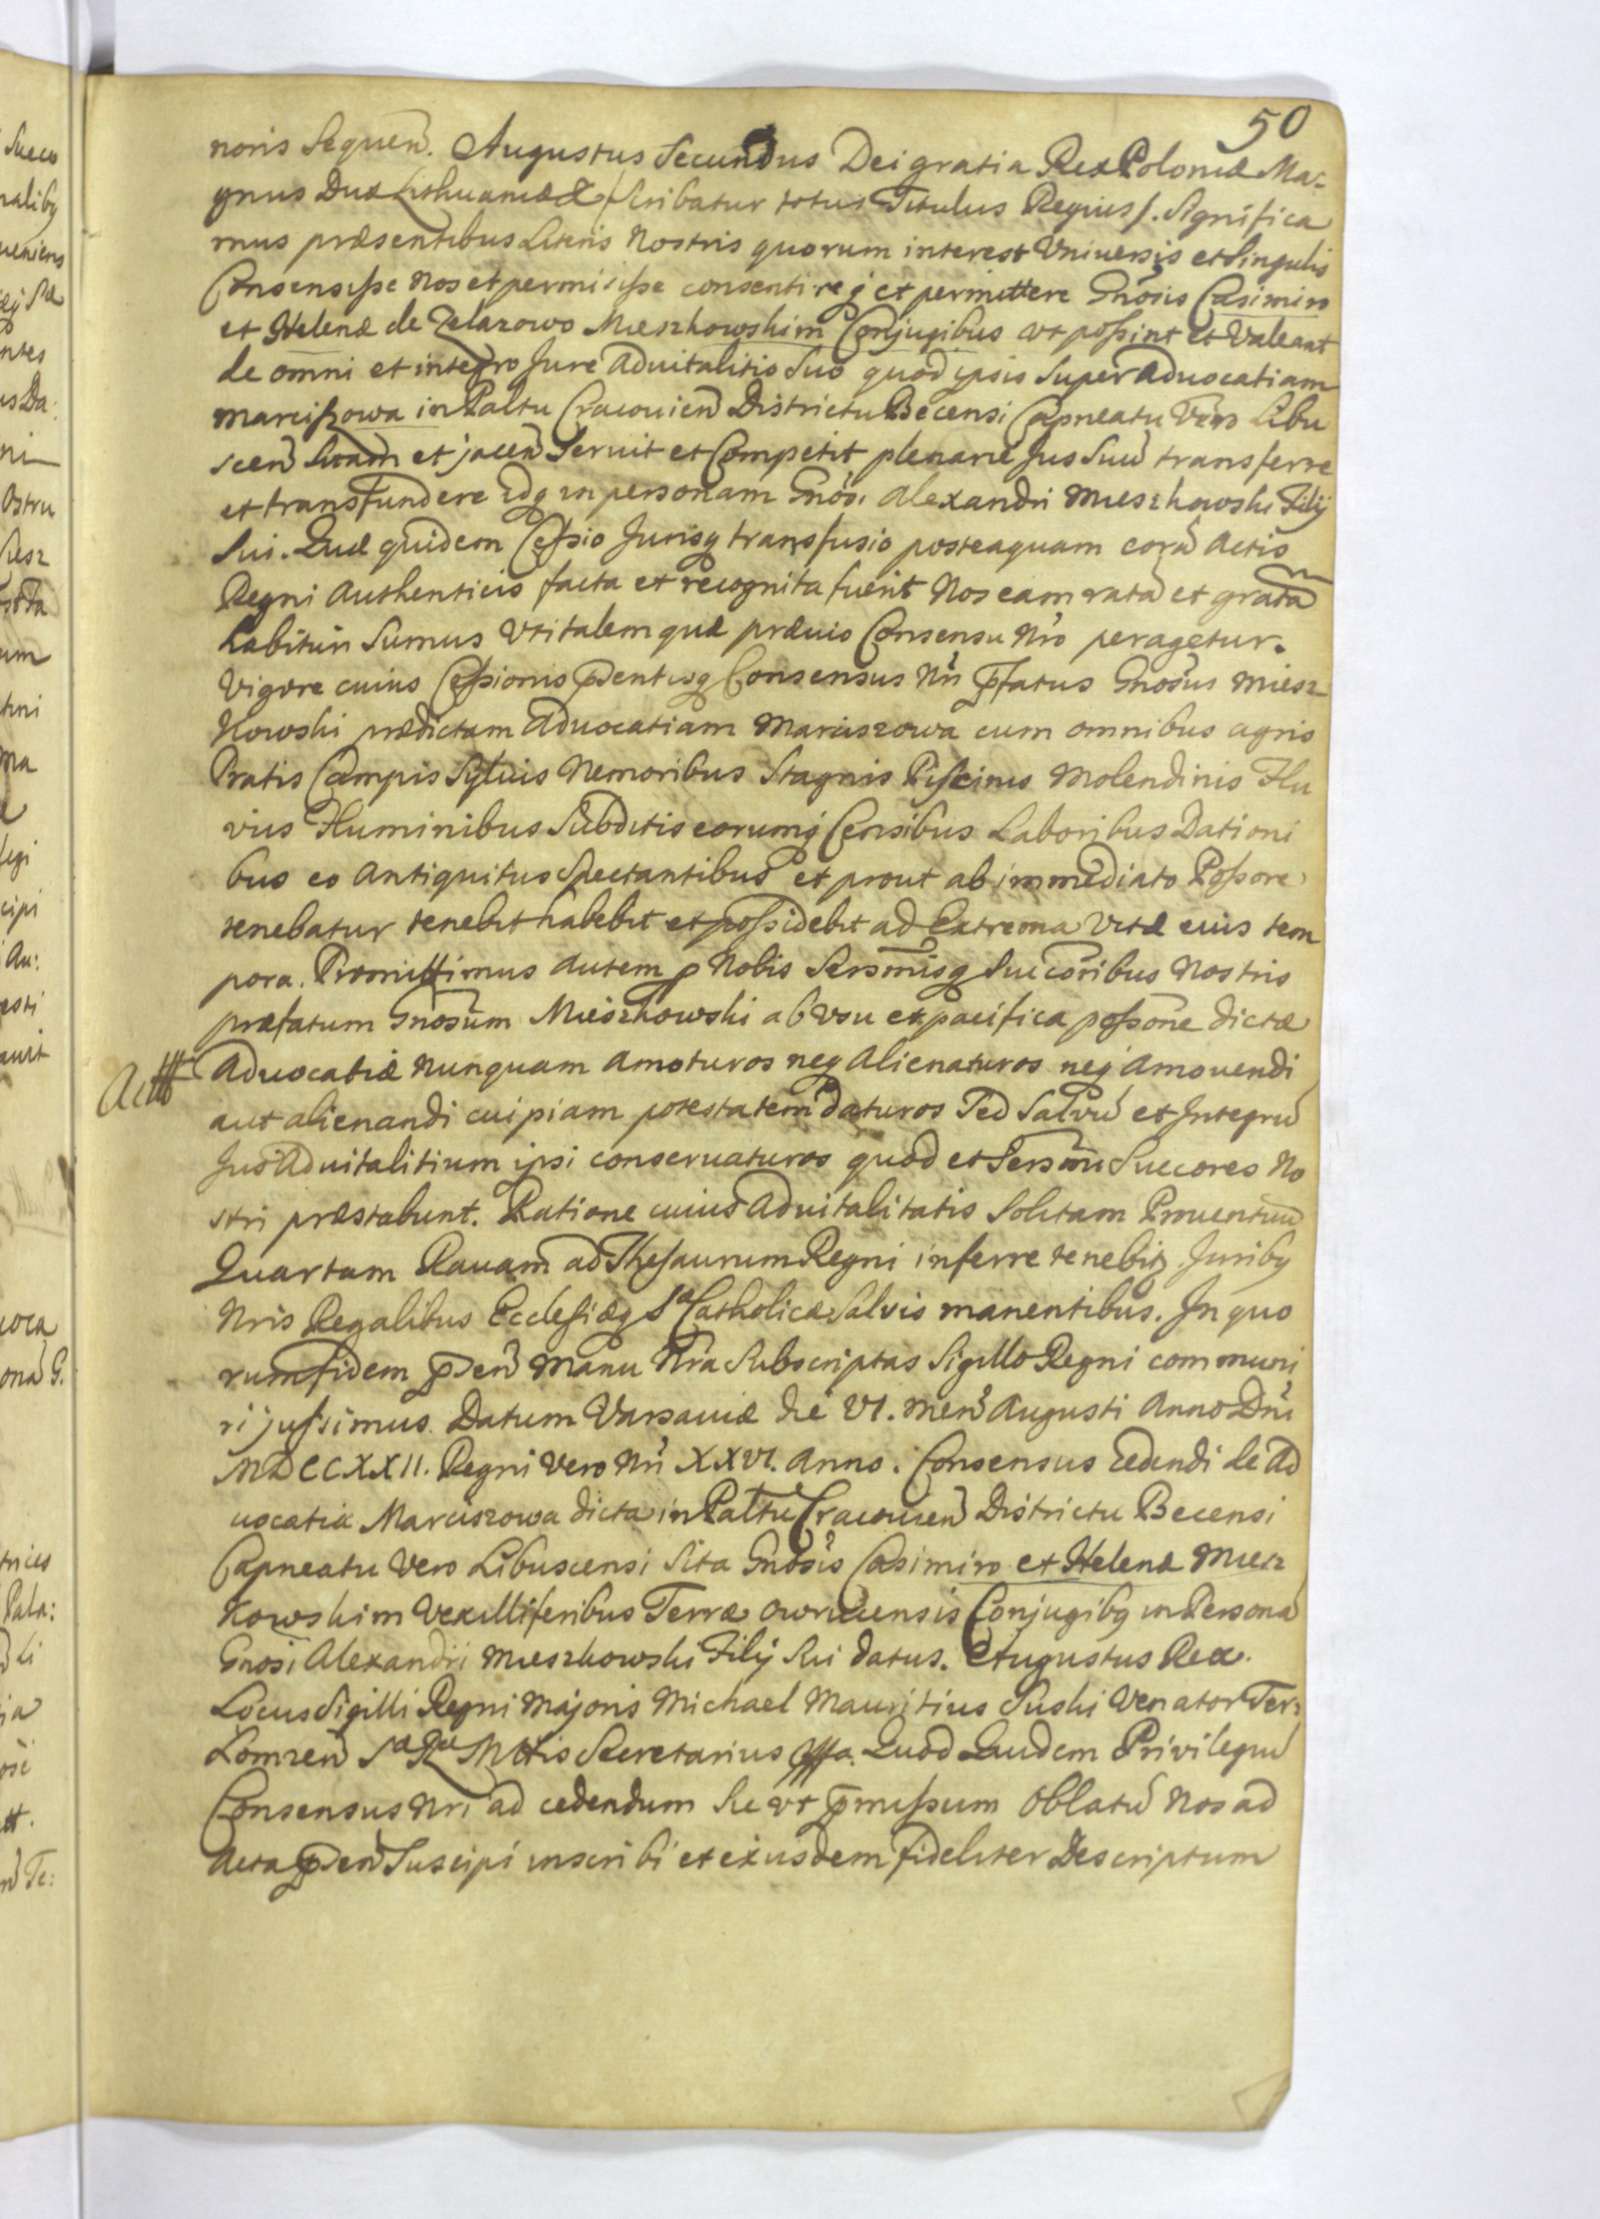 50
noris Sequen. Augustus Secundus Dei gratia Rex Poloniæ Ma-
gnus Dux Lithuaniæ & /Scribatur totus Titulus Regius/. Significa
mus præsentibus Literis Nostris quorum interest Vniuersis et Singulis
Consensisse Nos et permisisse consentireq et permittere Gnosis Casimiro
et Helenæ de Zelazowo Mieszkowskim Conjugibus vt possint et Valeant
de omni et integro Jure Aduitalitio Suo quod ipsis super Aduocatiam
Marciszowa in Paltu Cracouien Districtu Becensi Capneatu Vero Libu
scen Sitam et jacen Seruit et Competit plenarie Jus Suu transferre
et transfundere idq in personam Gnosi Alexandri Mieszkowski Filij
Sui. Quæ quidem Cessio Jurisq transfusio posteaquam cora Actis
Regni Authenticis facta et recognita fuerit Nos eam rata et grata
habituri Sumus Vti talem quæ præuio Consensu Nro peragetur.
Vigore cuius Cessionis pdentisq Consensus Nri pfatus Gnosus Miesz
Kowski prædictam Aduocatiam Marciszowa cum omnibus agris
Pratis Campis Sylvis Nemoribus Stagnis Piscinis Molendinis Flu
viis Fluminibus Subditis eorumq Censibus Laboribus Dationi
bus eo Antiquitus Spectantibus et prout ab immediato Possore
tenebatur tenebit habebit et possidebit ad Extrema Vitæ eius tem
pora. Promittimus autem p Nobis Sersmisq Succoribus Nostris
præfatum Gnosum Mieszkowski ab Vsu et pacifica possone dictæ
Aduocatiæ Nunquam Amoturos neq Alienaturos neq Amouendi
aut alienandi cuipiam potestatem daturos Sed Salvu et Integru
Jus Aduitalitium ipsi conseruaturos quod et Sersmi Succores No
stri præstabunt. Ratione cuius Aduitalitatis Solitam Prouentuu
Quartam Rauam ad Thesaurum Regni inferre tenebit Juriby
Nris Regalibus Ecclesiæq Sæ Catholicæ Salvis manentibus. In quo
rum fidem pden Manu Nra Subscriptas Sigillo Regni communi
ri jussimus. Datum Varsauiæ die VI. Men Augusti Anno Dni
MDCCXXII. Regni Vero Nri XXVI. Anno. Consensus Cedendi de Ad
uocatia Marciszowa dicta in Paltu Cracouien Districtu Becensi
Capneatu Vero Libuscensi Sita Gnosis Casimiro et Helenæ Miesz
Kowskim Vexilliferibus Terræ Owrucensis Conjugiby in Persona
Gnosi Alexandri Mieszkowski Filij Sui datus. Augustus Rex.
Locus Sigilli Regni Majoris Michael Mauritius Suski Venator Ter:
Lomzen Sæ Ræ Mttis Secretarius. Quod Quidem Privilegiu
Consensus Nri ad cedendum Sic vt pmissum Oblatu Nos ad
Acta pden Suscipi inscribi et eiusdem fideliter Descriptum